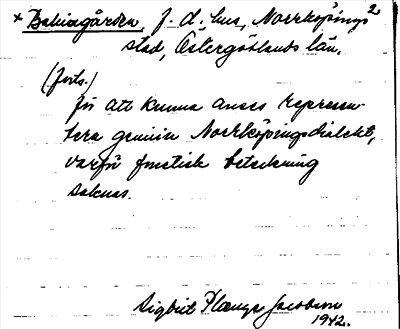 × Balvagården, f. d. hus, Norrköpings 2
stad, Östergötlands län.
(forts.)
för att kunna anses represen-
tera genuin Norrköpingsdialekt,
varför fonetisk beteckning
saknas.
Sigbrit Plænge Jacobson
1942.